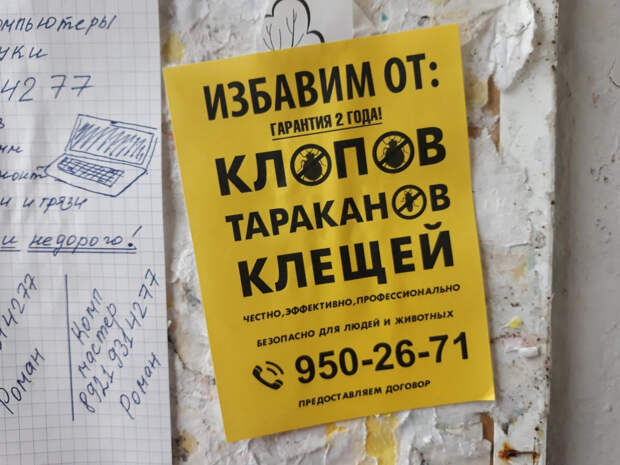 омпьютеры
уки
4277
монт
и и грязи
и недорого!
4277
Роман
Комп
мастер
89219314277
Роман
ИЗБАВИМ ОТ:
ГАРАНТИЯ 2 ГОДА!
КЛОПОВ
ТАРАКАНОВ
КЛЕЩЕЙ
ЧЕСТНО, ЭФФЕКТИВНО, ПРОФЕССИОНАЛЬНО
БЕЗОПАСНО ДЛЯ ЛЮДЕЙ И ЖИВОТНЫХ
950-26-71
ПРЕДОСТАВЛЯЕМ ДОГОВОР